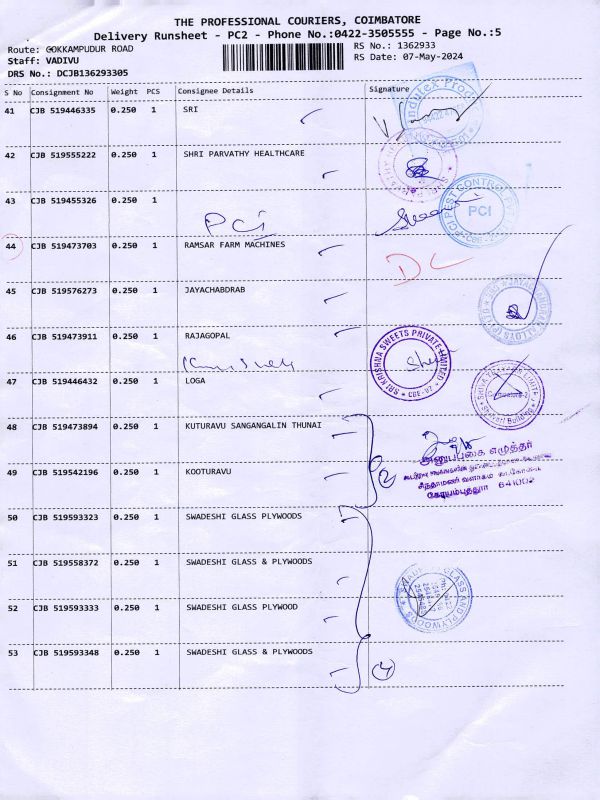 THE PROFESSIONAL COURIERS, COIMBATORE
Delivery Runsheet - PC2 - Phone No.:0422-3505555 - Page No.:5
Route: GOKKAMPUDUR ROAD
RS No.: 1362933
Staff: VADIVU
RS Date: 07-May-2024
DRS No.: DCJB136293305
S No Consignment No Weight PCS Consignee Details Signature
41 CJB 519446335 0.250 1 SRI
42 CJB 519555222 0.250 1 SHRI PARVATHY HEALTHCARE
43 CJB 519455326 0.250 1
PCI
PCI PEST CONTROL
PCI
CBE
44 CJB 519473703 0.250 1 RAMSAR FARM MACHINES
DL
45 CJB 519576273 0.250 1 JAYACHABDRAB
46 CJB 519473911 0.250 1 RAJAGOPAL
SRI KRISHNA SWEETS PRIVATE LIMITED
CBE
47 CJB 519446432 0.250 1 LOGA
48 CJB 519473894 0.250 1 KUTURAVU SANGANGALIN THUNAI
எழுத்தர்
49 CJB 519542196 0.250 1 KOOTURAVU
2
641002
50 CJB 519593323 0.250 1 SWADESHI GLASS PLYWOODS
51 CJB 519558372 0.250 1 SWADESHI GLASS & PLYWOODS
SWADESHI GLASS AND PLYWOODS
52 CJB 519593333 0.250 1 SWADESHI GLASS PLYWOOD
53 CJB 519593348 0.250 1 SWADESHI GLASS & PLYWOODS
4